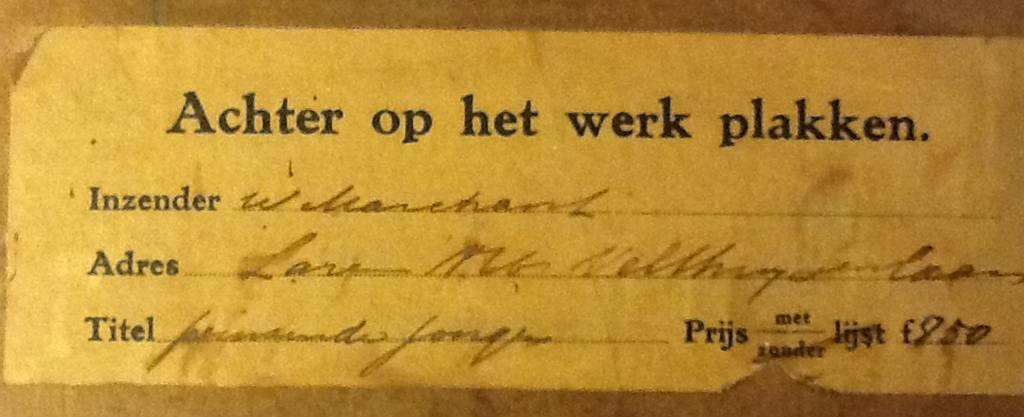 Achter op het werk plakken.
Inzender W Marchant
Adres Laren NH Velthuysenlaan
Titel peinzende jongen Prijs met/zonder lijst f 850